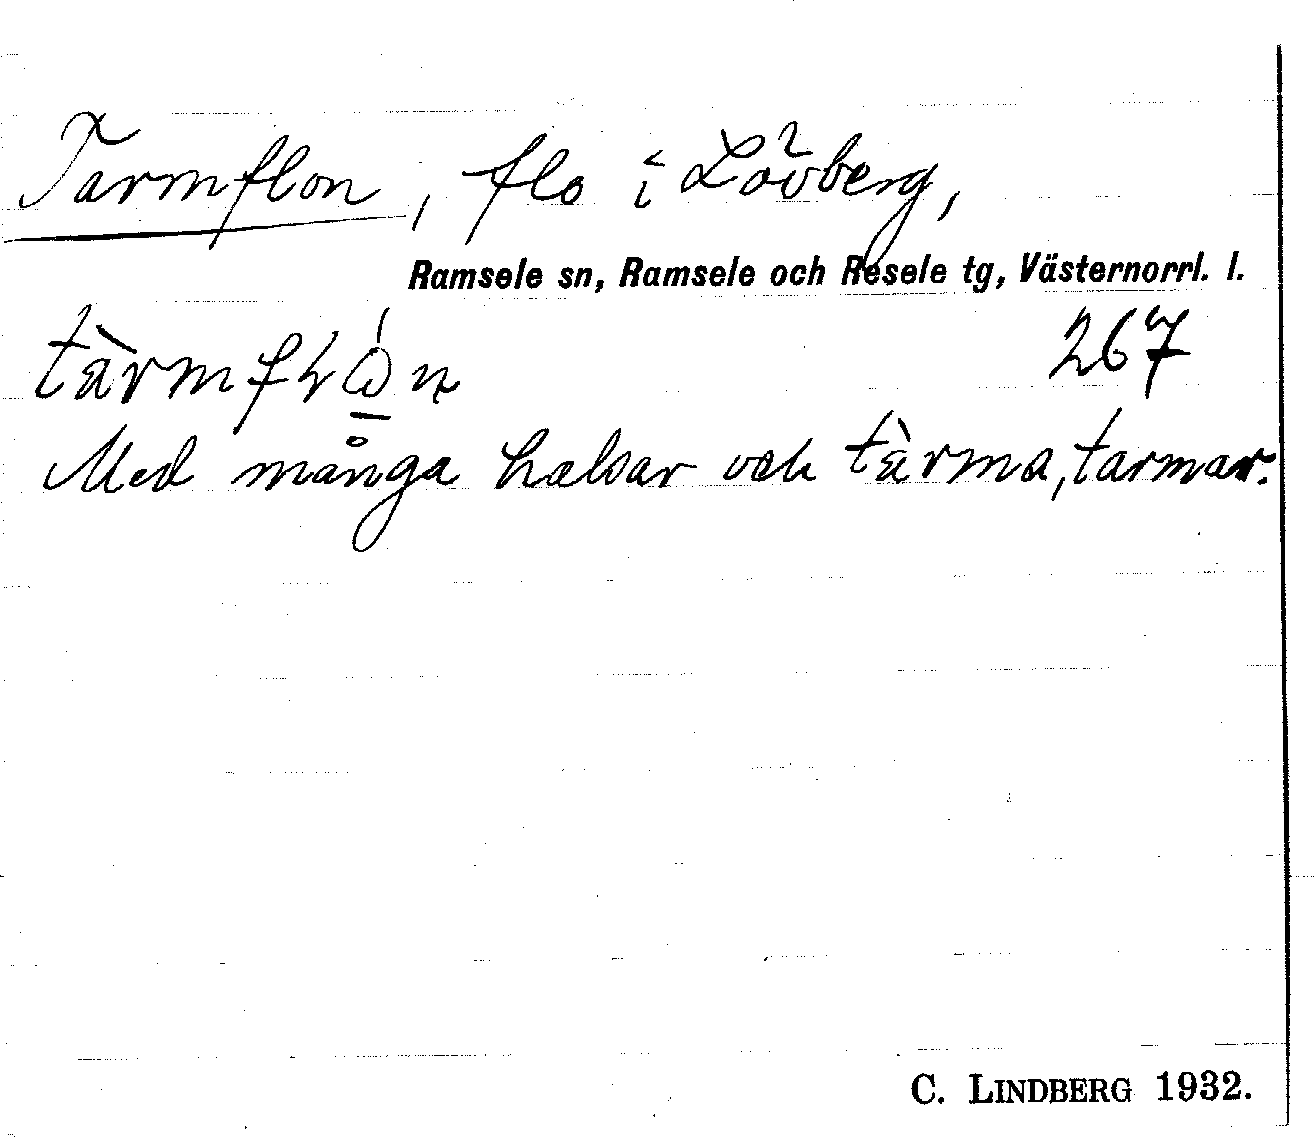 Tarmflon, flo i Lövberg,
Ramsele sn, Ramsele och Resele tg, Västernorrl. l.
267
Med många halsar och tàrma, tarmar.
C. LINDBERG 1932.